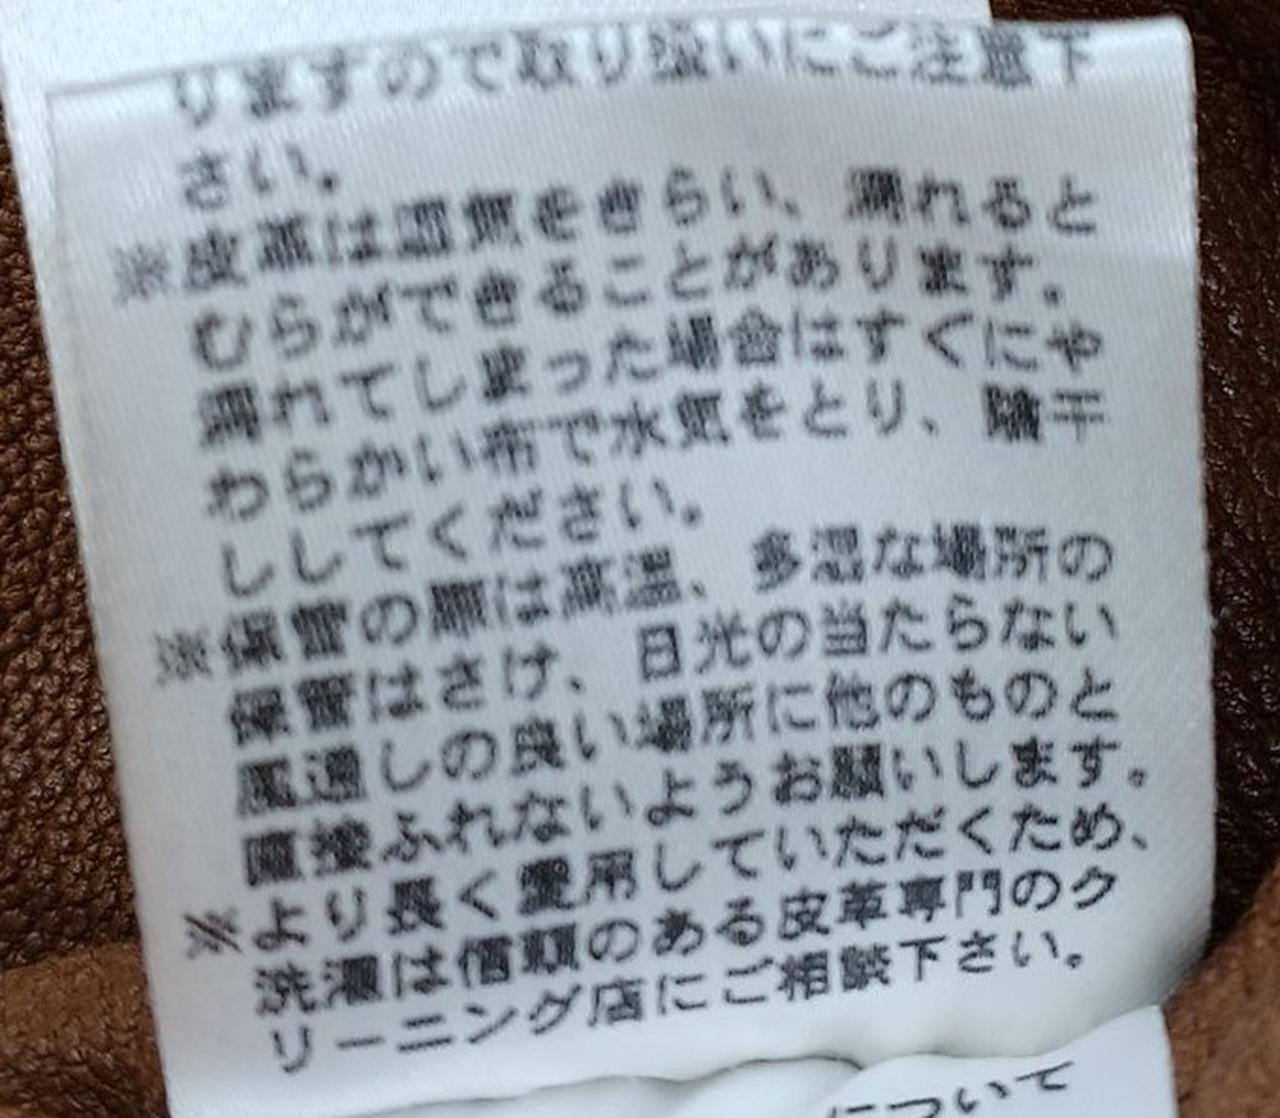 りますので取り扱いにご注意下
さい。
※皮革は湿気をきらい、濡れると
むらができることがあります。
濡れてしまった場合はすぐにや
わらかい布で水気をとり、陰干
ししてください。
※保管の際は高温、多湿な場所の
保管はさけ、日光の当たらない
風通しの良い場所に他のものと
直接ふれないようお願いします。
※より長く愛用していただくため、
洗濯は信頼のある皮革専門のク
リーニング店にご相談下さい。
について